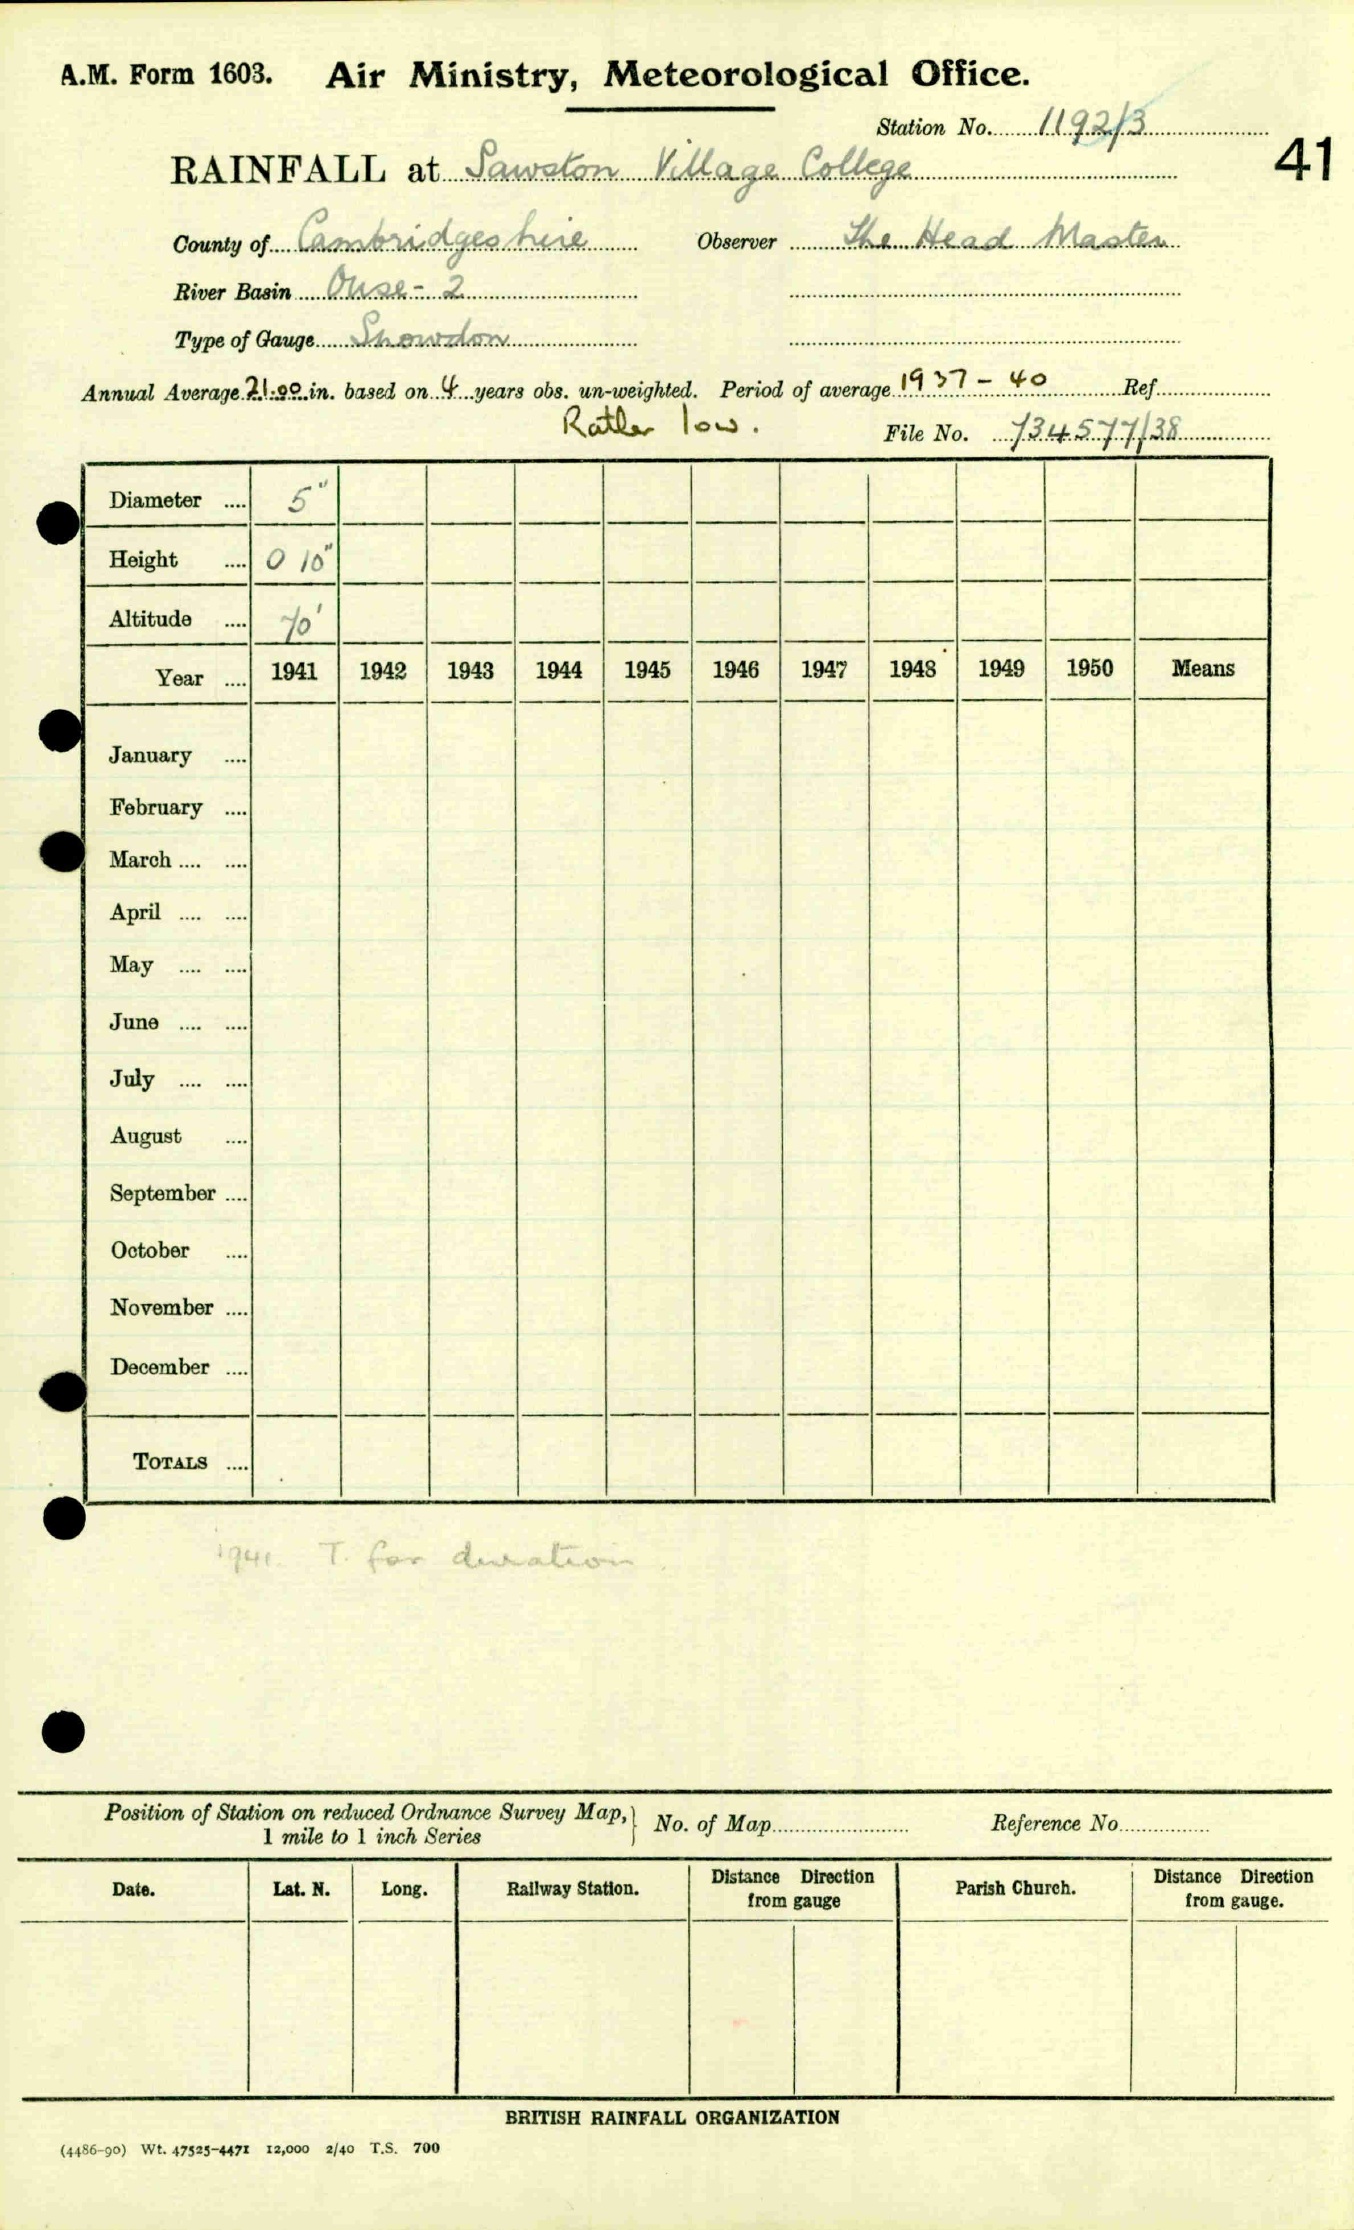 A.M. Form 1603. Air Ministry, Meteorological Office.
Station No. 1192/3
41
RAINFALL at Sawston Village College
County of Cambridgeshire Observer The Head Master
River Basin Ouse - 2
Type of Gauge Snowdon
Annual Average 21.00 in. based on 4 years obs. un-weighted. Period of average 1937 - 40 Ref.
Rather low. File No. 734577/38
Diameter .... 5"
Height .... 0 10"
Altitude .... 70'
Year .... 1941 1942 1943 1944 1945 1946 1947 1948 1949 1950 Means
January ....
February ....
March .... ....
April .... ....
May .... ....
June .... ....
July .... ....
August ....
September ....
October ....
November ....
December ....
TOTALS ....
1941. T. for duration.
Position of Station on reduced Ordnance Survey Map, } No. of Map Reference No.
1 mile to 1 inch Series
Date. Lat. N. Long. Railway Station. Distance Direction from gauge Parish Church. Distance Direction from gauge.
BRITISH RAINFALL ORGANIZATION
(4486-90) Wt. 47525-4471 12,000 2/40 T.S. 700